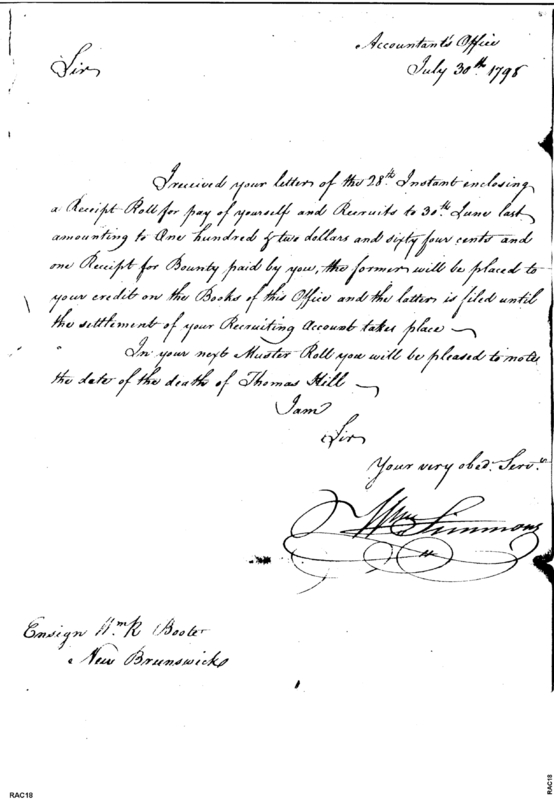 Accountant's Office
July 30th 1798
Sir
I received your letter of the 28th Instant enclosing
a Receipt Roll for pay of yourself and Recruits to 30th June last
amounting to One hundred & two dollars and sixty four cents and
one Receipt for Bounty paid by you, the former will be placed to
your credit on the Books of this Office and the latter is filed until
the settlement of your Recruiting Account takes place
In your next Muster Roll you will be pleased to note
the date of the death of Thomas Hill
I am
Sir
Your very obed. Servt
Wm Simmons
Ensign Wm R Boote
New Brunswick
RAC18
RAC18